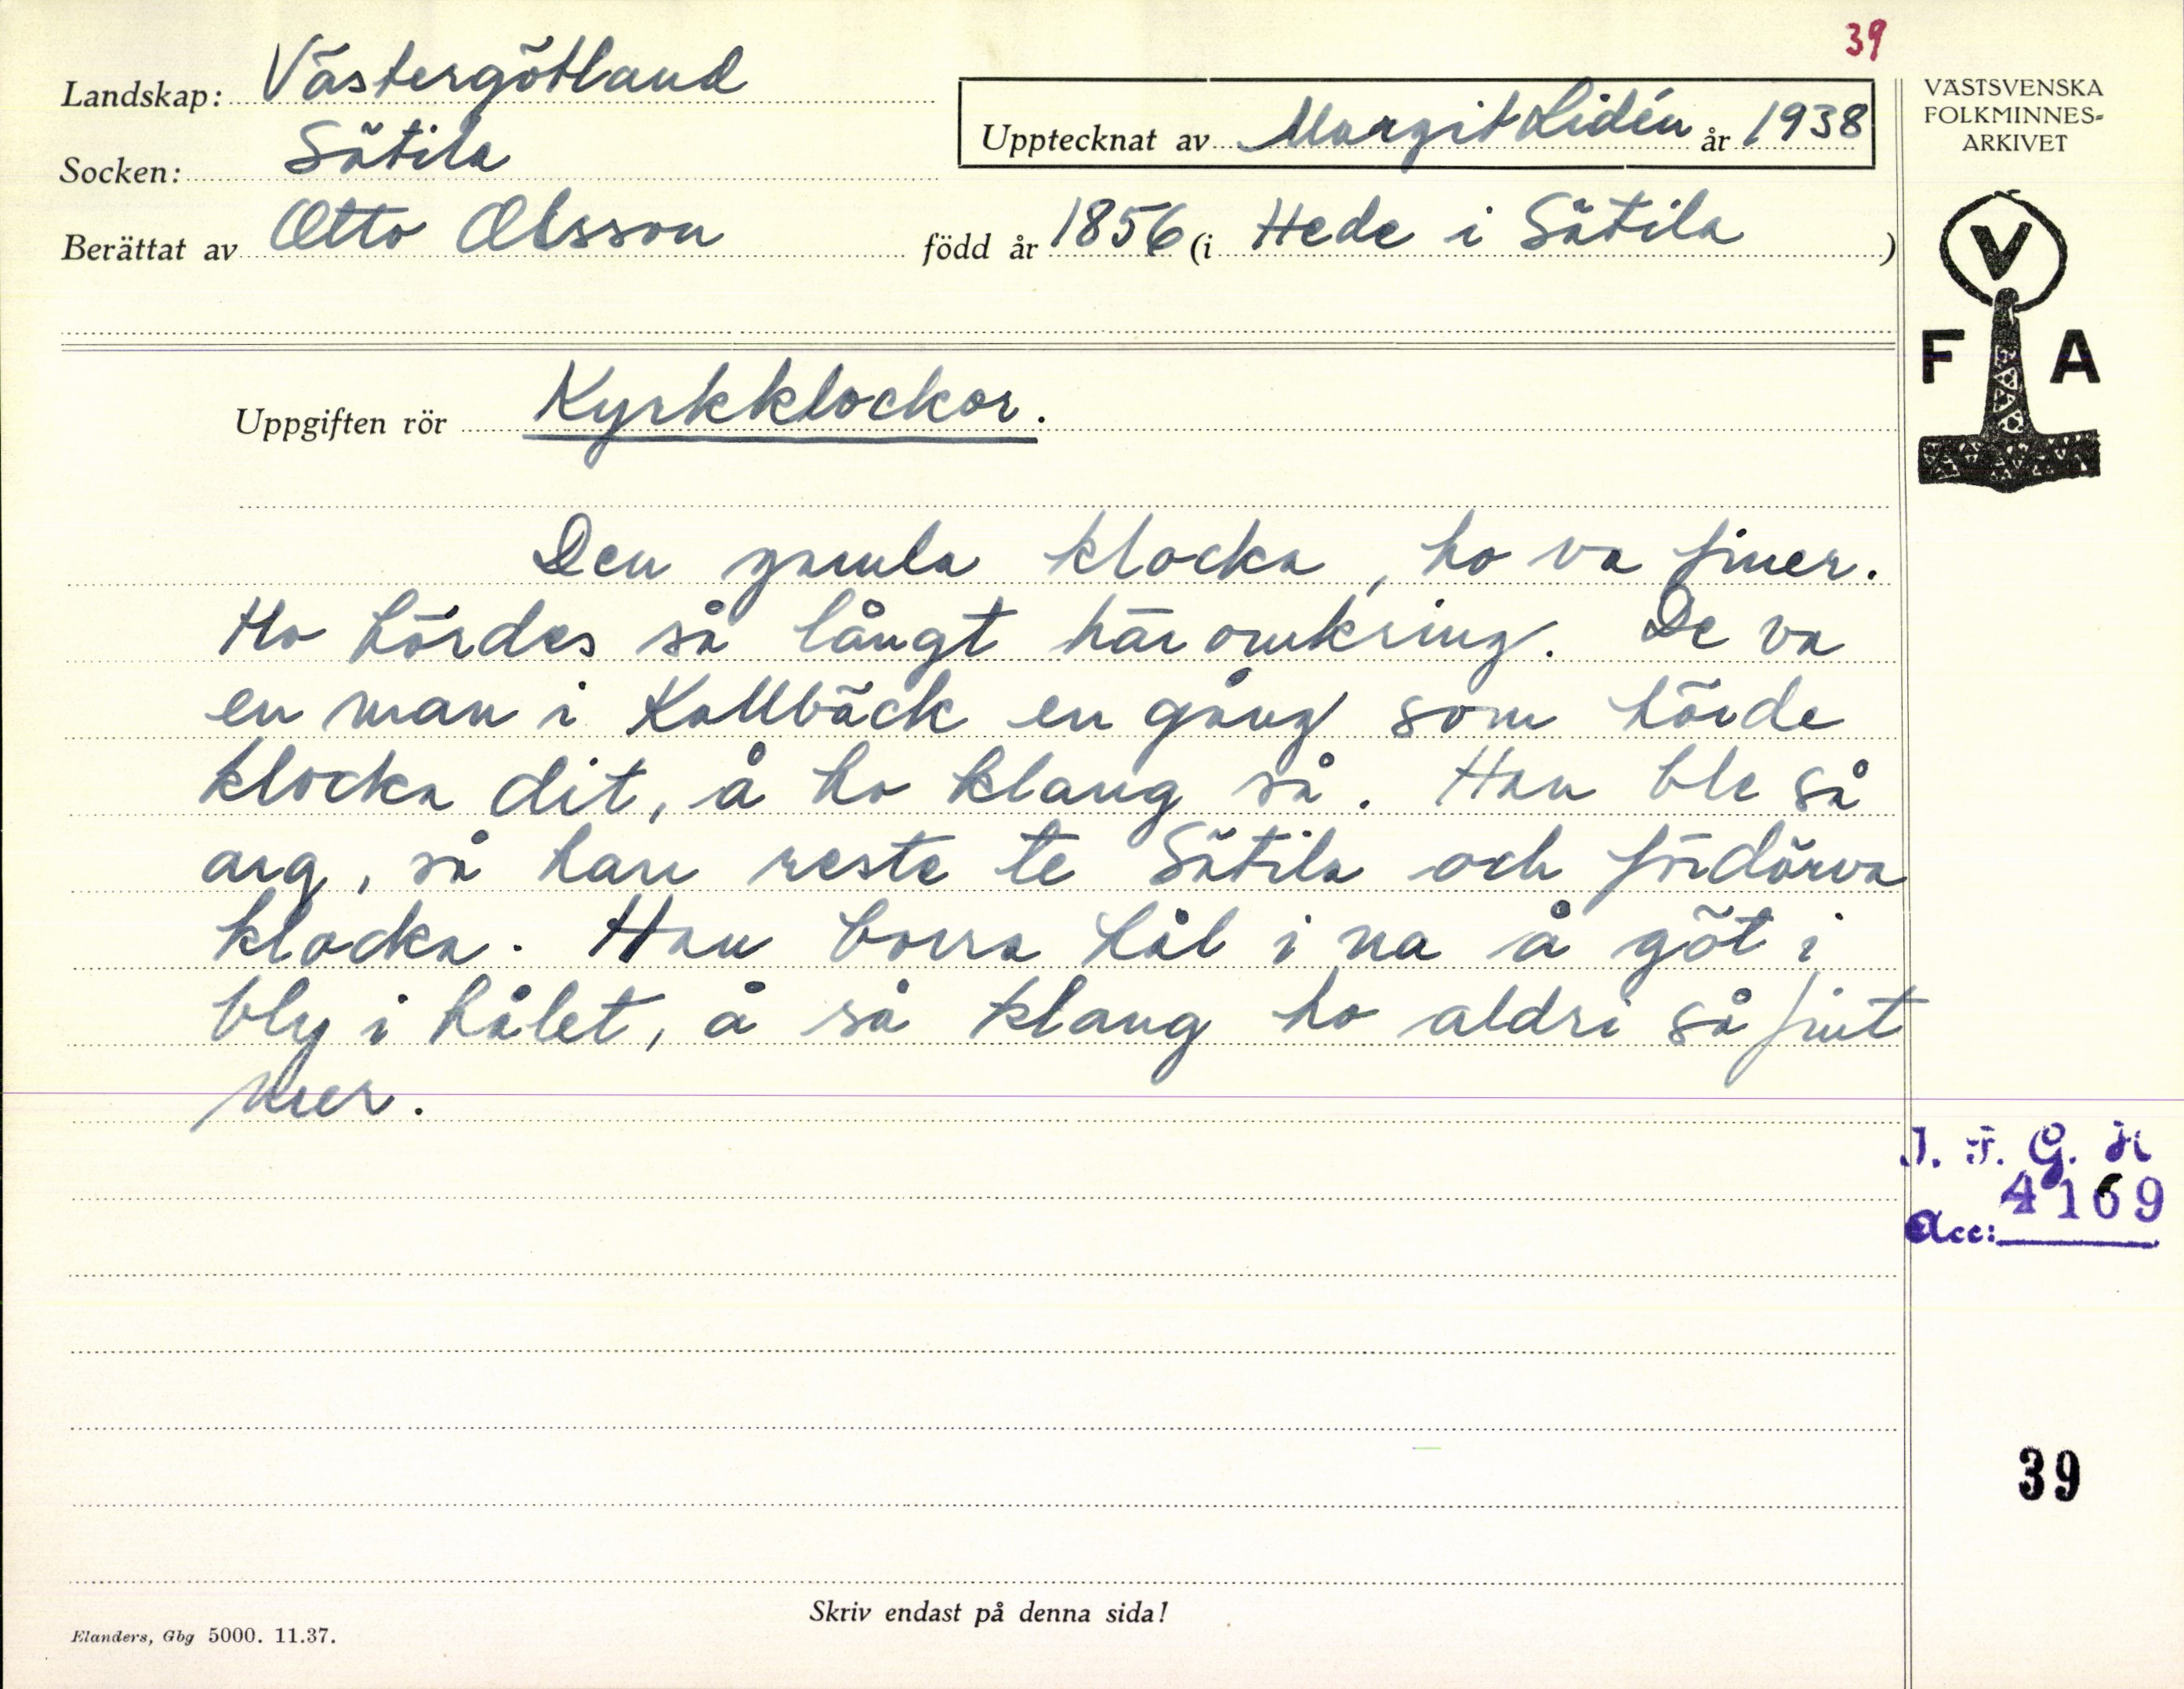 39
Landskap: Västergötland
Socken: Sätila
Upptecknat av Margit Lidén år 1938
Berättat av Otto Olsson född år 1856 (i Hede i Sätila)
VÄSTSVENSKA
FOLKMINNES-
ARKIVET
V
F A
Uppgiften rör Kyrkklockor.
Den gamla klocka, ho va finer.
Ho hördes så långt häromkring. De va
en man i Kallbäck en gång som hörde
klocka dit, å ho klang så. Han ble så
arg, så han reste te Sätila och fördärva
klocka. Han borra hål i na å göt i
bly i hålet, å så klang ho aldri så fint
mer.
I. F. G. H
4169
Acc:
39
Skriv endast på denna sida!
Elanders, Gbg 5000. 11.37.